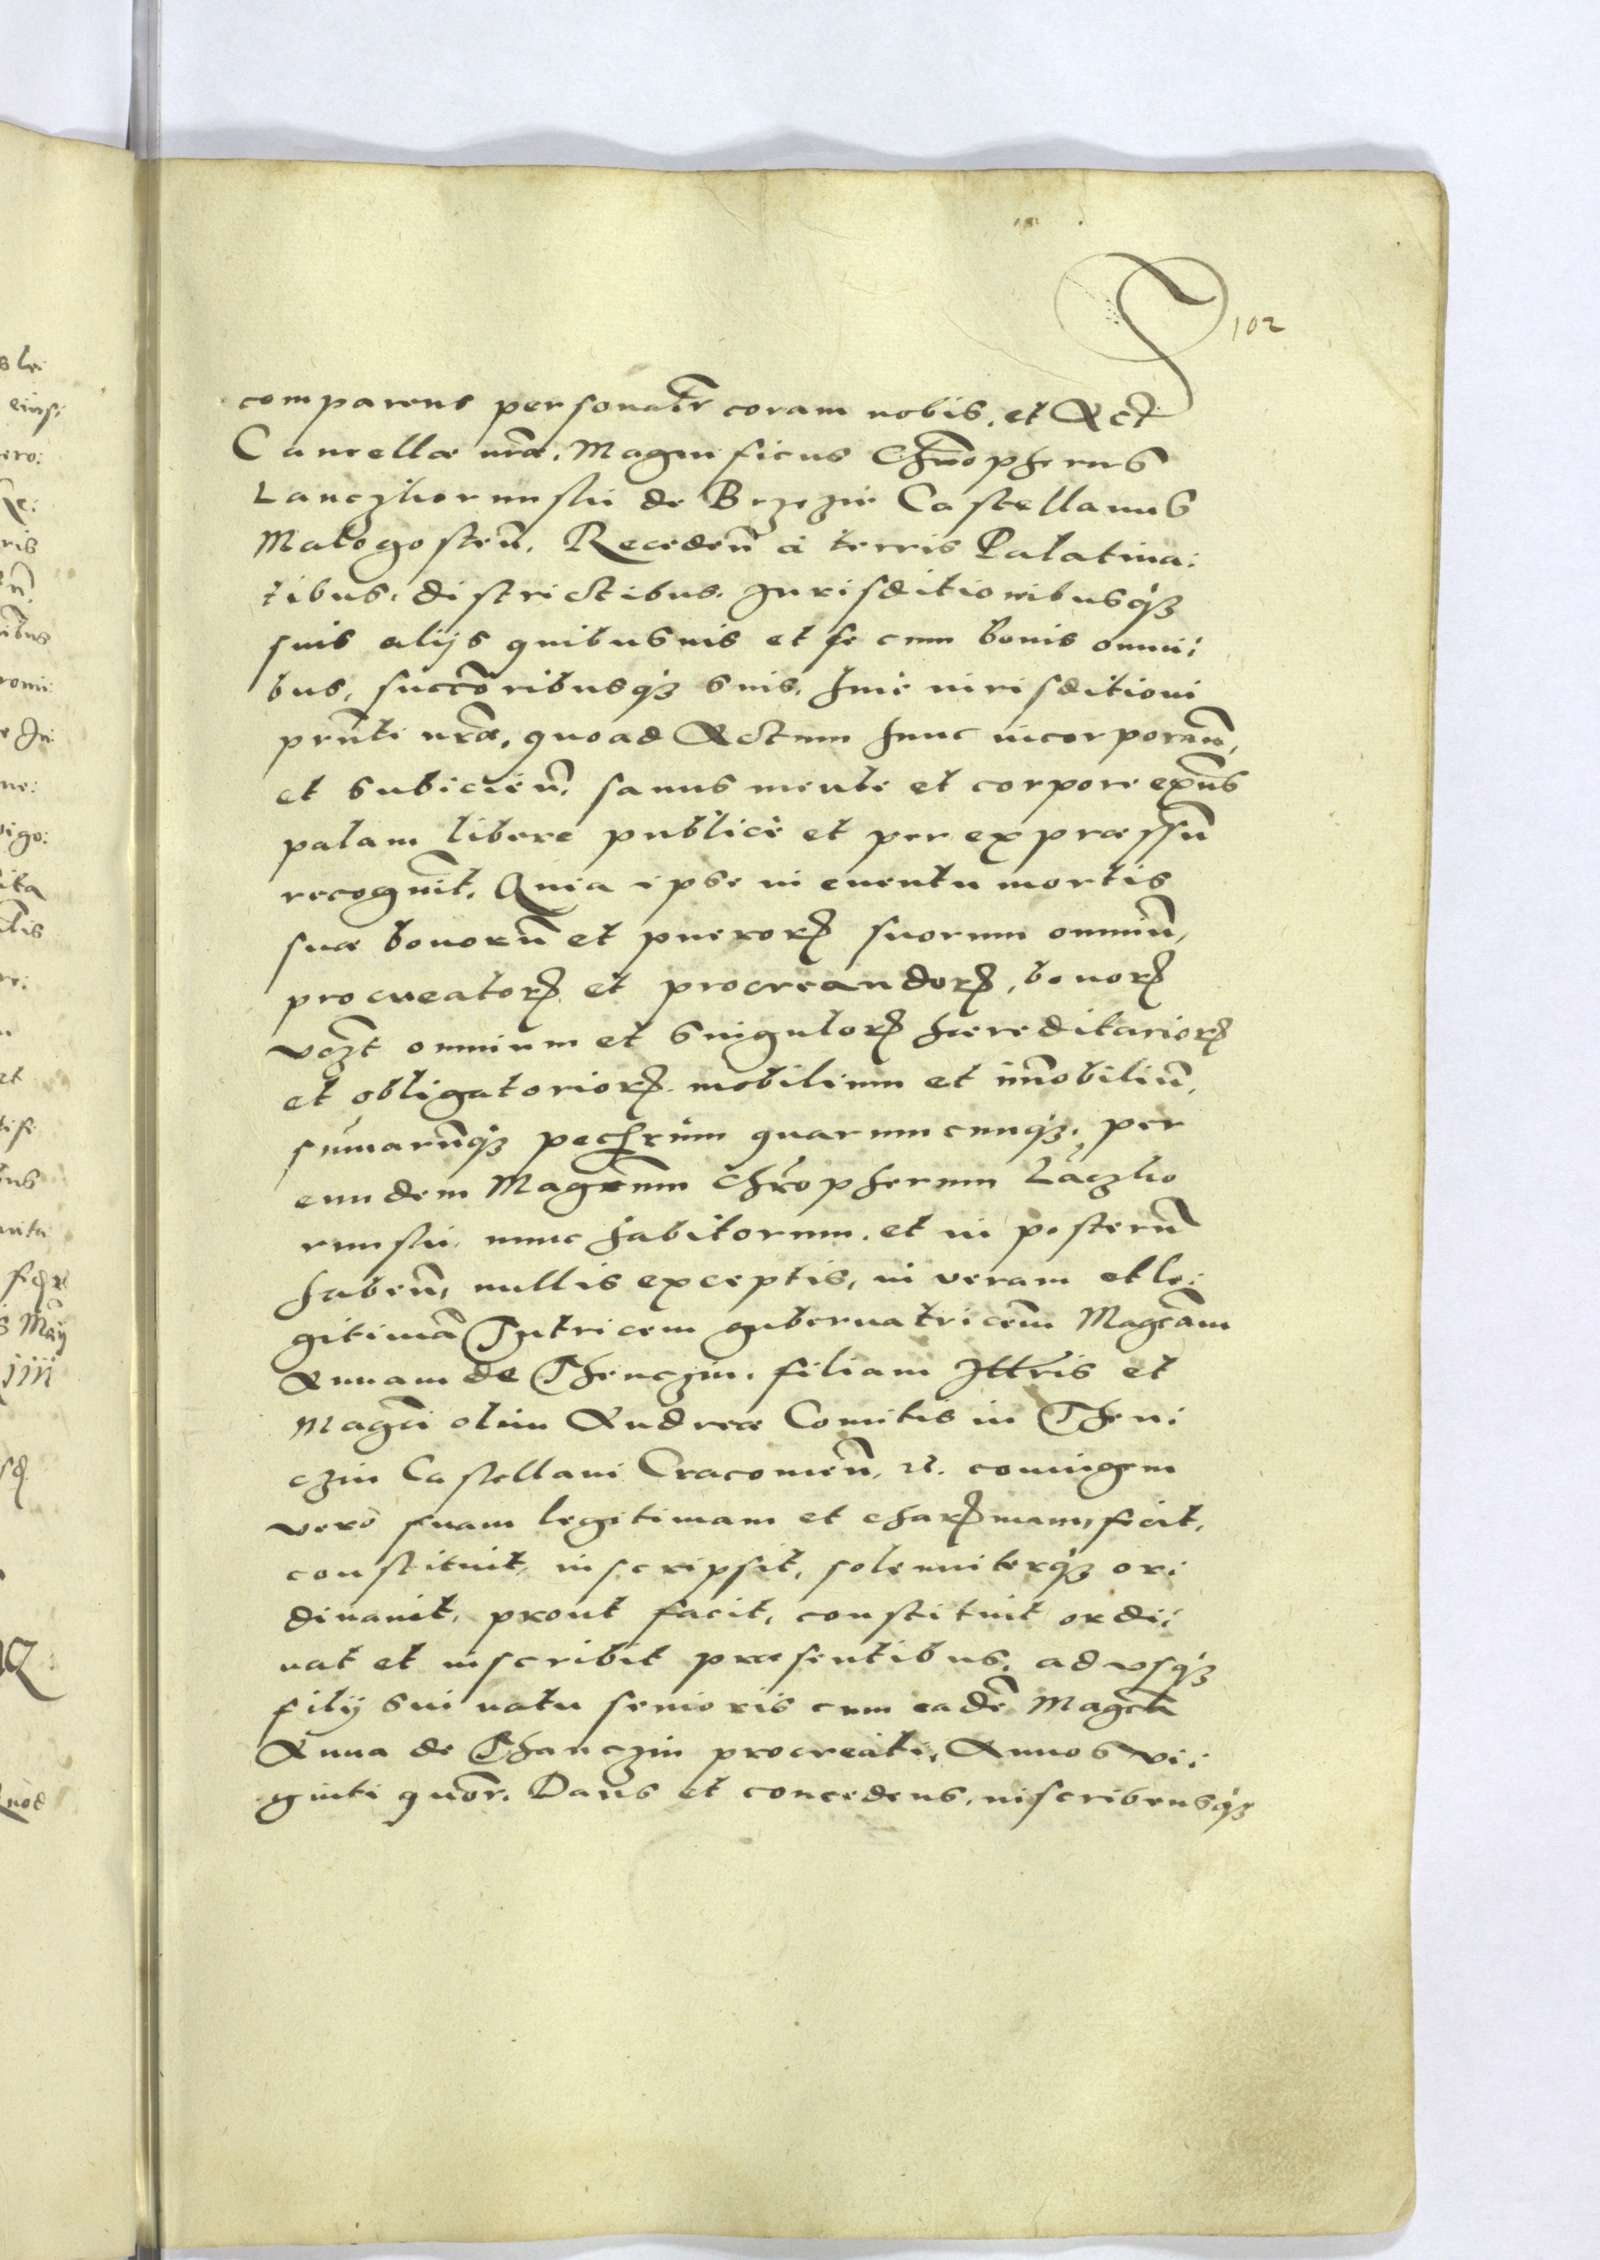 102
comparens personalr coram nobis, et Act
Cancellæ nræ, Magnificus Chrophorus
Lanczkorunski de Brzezie Castellanus
Malogosten, Receden a terris Palatina:
tibus, districtibus, Jurisditionibusq3
suis alijs quibusuis et se cum bonis omni:
bus, succoribusq3 suis, huic iurisditioni
prnti nræ, quoad Actum hunc incorporan,
et subiicien, sanus mente et corpore exns
palam libere publicè et per expræssu
recognit, Quia ipse in euentu mortis
suæ bonoru et pueror suorum omniu,
procreator et procreandor, bonor
vozt omnium et singulor hæreditarior
et obligatorior mobilium et immobiliu,
sumaruq3 pecharum quarumcunq3, per
eundem Magcum Chrophorum Laczko
runski, nunc habitorum, et in posteru
haben, nullis exceptis, in veram et le:
gitima Tutricem gubernatricem Magcam
Annam de Thenczin, filiam Illris et
Magci olim Andreæ Comitis in Then:
czin Castellani Cracouien, etc. coniugem
verò suam legitimam et charmam, fecit,
constituit, inscripsit, solenniterq3 or:
dinauit, prout facit, constituit ordi:
nat et inscribit præsentibus, ad vsq3
filij sui natu senioris cum eade Magca
Anna de Thenczin procreati, Annos vi:
ginti quor. Dans et concedens, inscribensq3